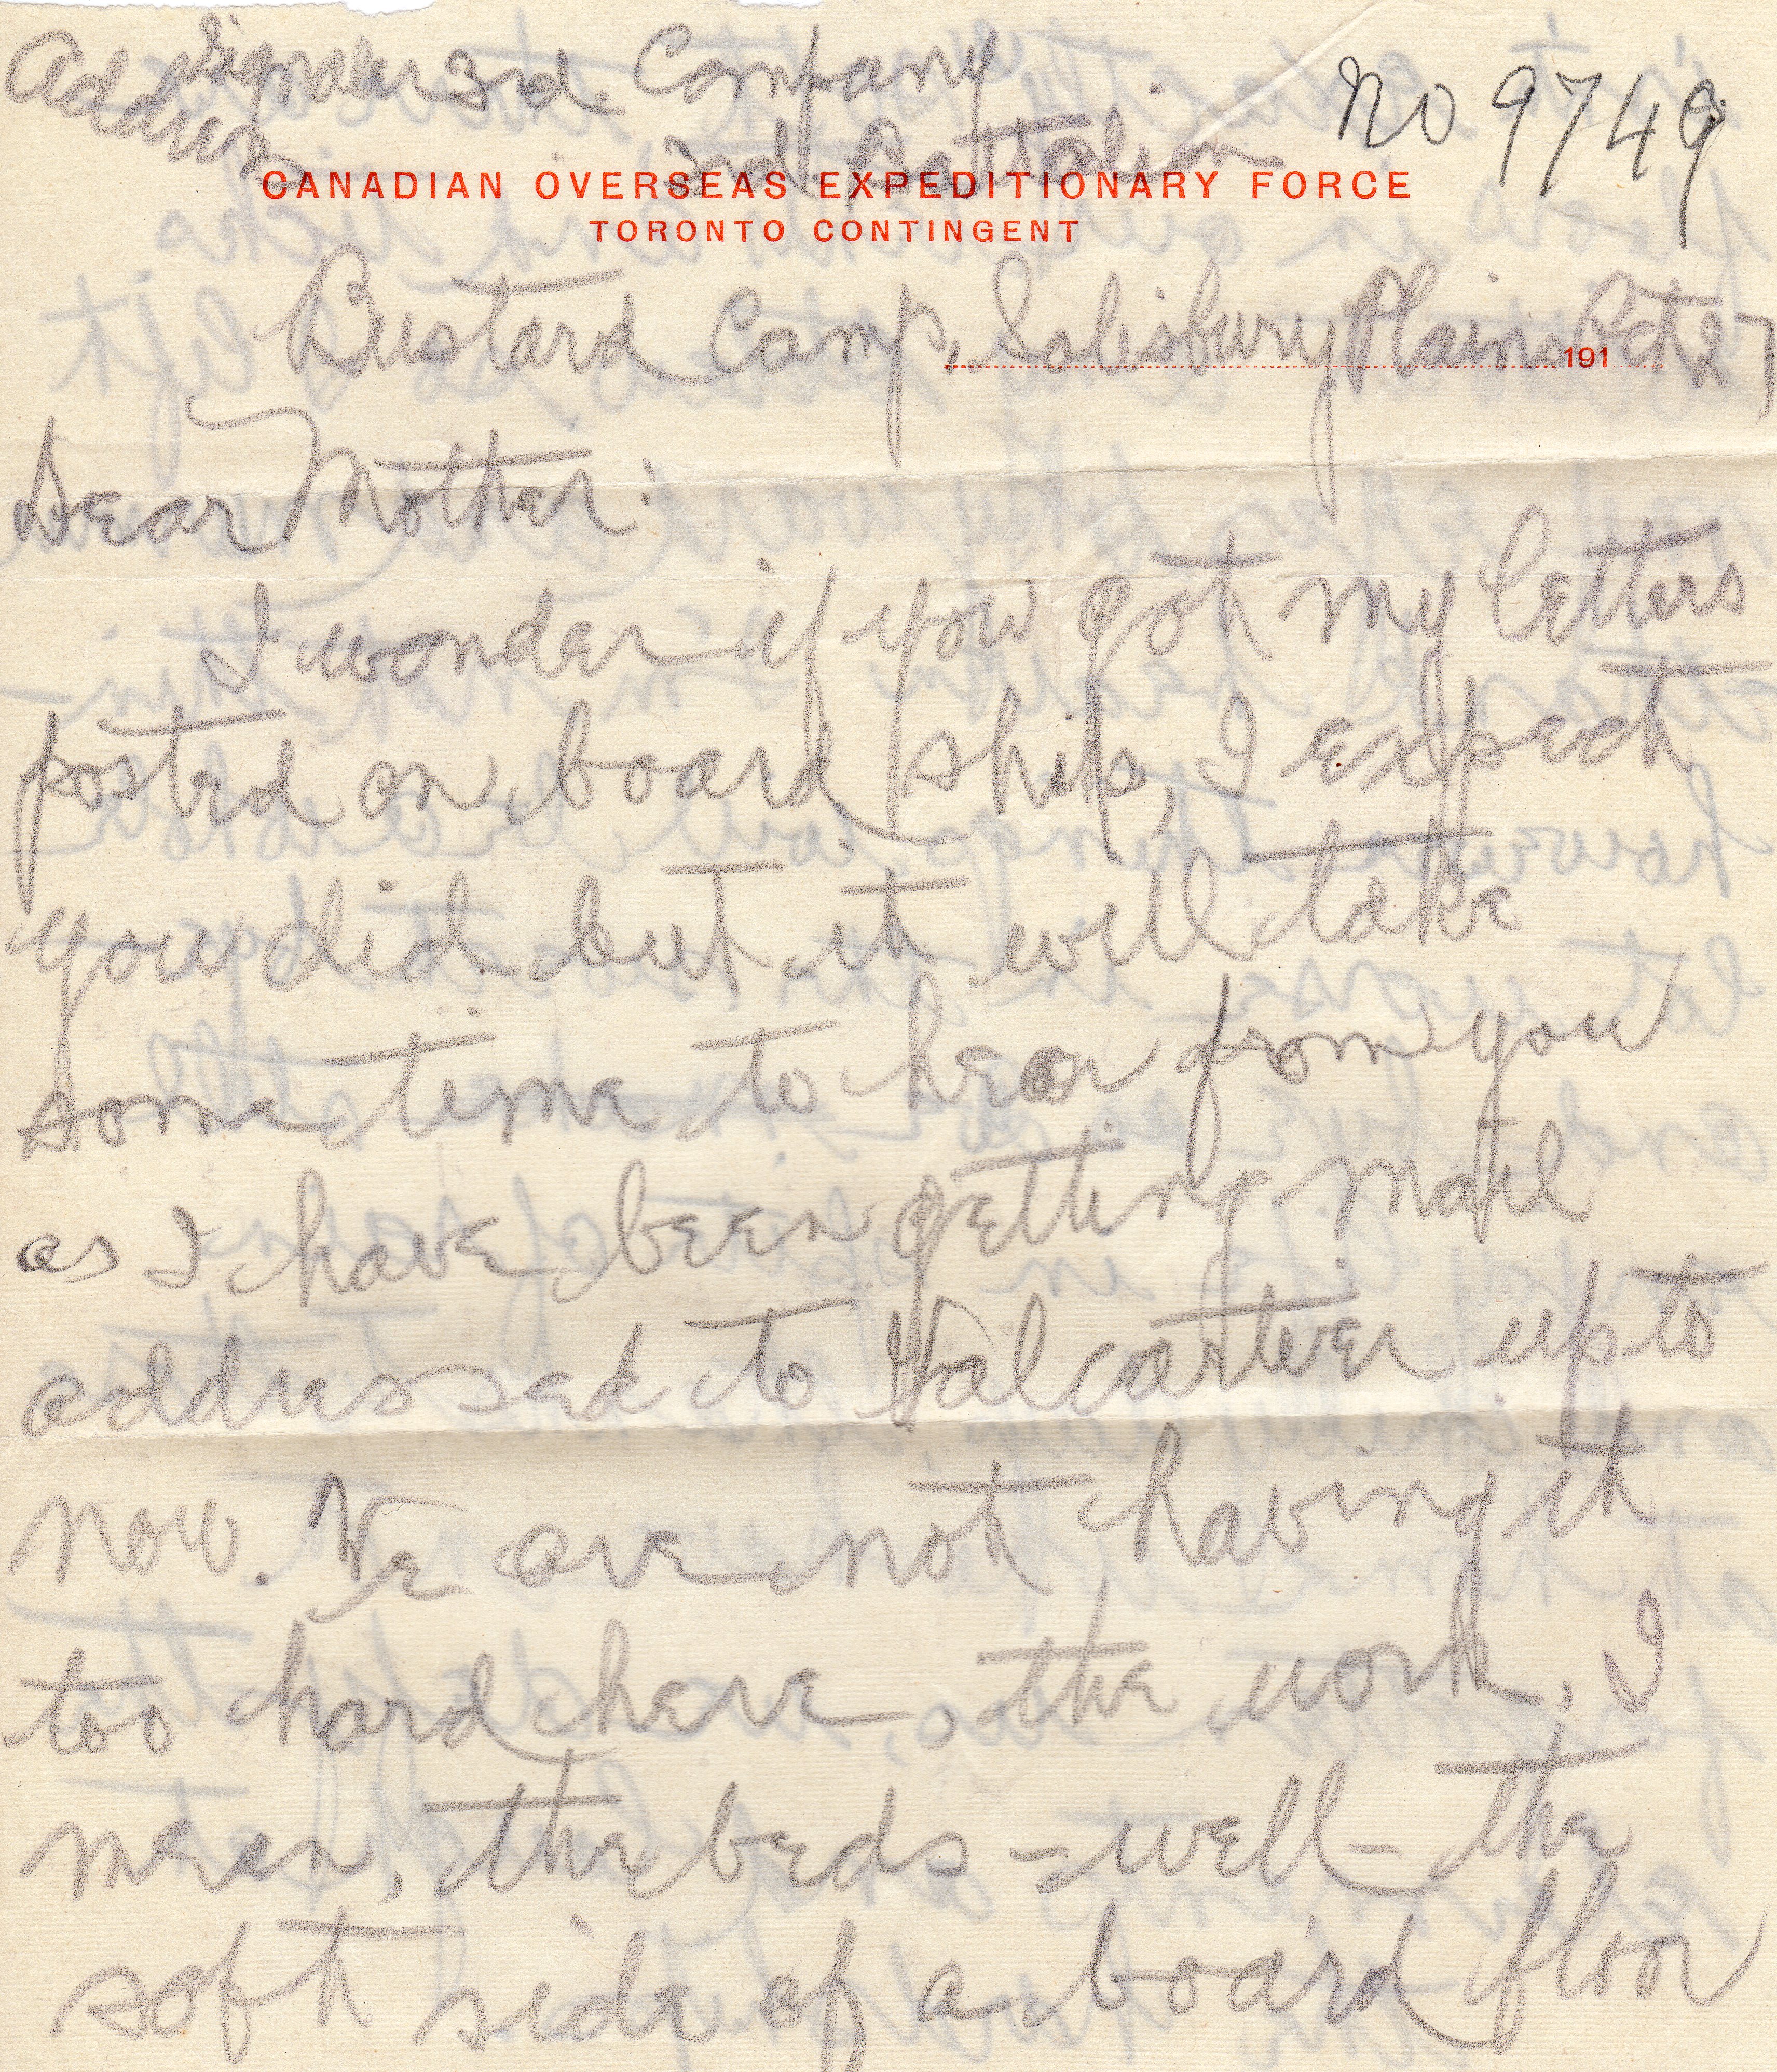 Address Signaler 3rd. Company
3rd Battalion
No 9749
CANADIAN OVERSEAS EXPEDITIONARY FORCE
TORONTO CONTINGENT
Bustard Camp, Salisbury Plains Oct 27
191
Dear Mother:
I wonder if you got my letters
posted on board ship, I expect
you did but it will take
some time to hear from you
as I have been getting mail
addressed to Valcartier up to
now. We are not having it
too hard here, the work, I
mean, the beds - well - the
soft side of a board floor